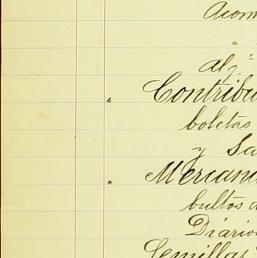 Acom
al
" Contribu
boletas
y Sa
" Mercanc
bultos d
Diario
Semillas